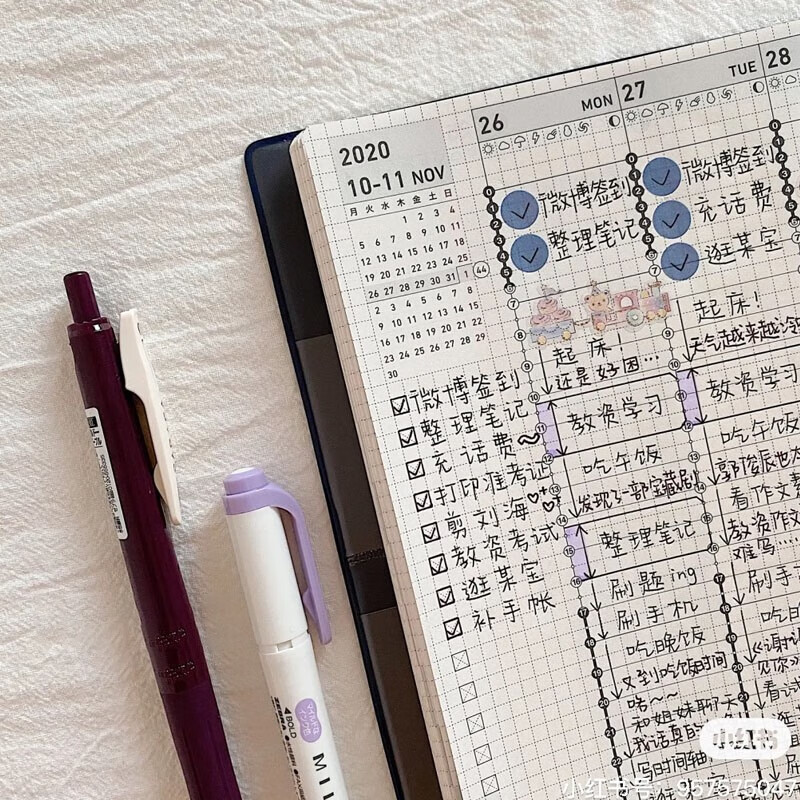 2020
10-11 NOV
月 火 水 木 金 土 日
1 2 3 4
5 6 7 8 9 10 11
12 13 14 15 16 17 18
19 20 21 22 23 24 25
26 27 28 29 30 31 1
2 3 4 5 6 7 8
9 10 11 12 13 14 15
16 17 18 19 20 21 22
23 24 25 26 27 28 29
30
44
微博签到
整理笔记
充话费~
打印准考证
剪刘海
教资考试
逛某宝
补手帐
26 MON
微博签到
整理笔记
起床!
还是好困…
教资学习
吃午饭
发现了一部宝藏剧
整理笔记
刷题ing
刷手机
吃晚饭
又到吃饭时间
喏~~
和姐妹聊天
我话真的
写时间轴
27 TUE
微博签到
充话费
逛某宝
起床!
天气越来越冷
教资学习
吃午饭
郭俊辰也太
看作文
教资作文
难写…
刷手
吃
《谢谢
见你》
看
28
BOLD
マイルドな
MIL
小红书
小红书号:957575047